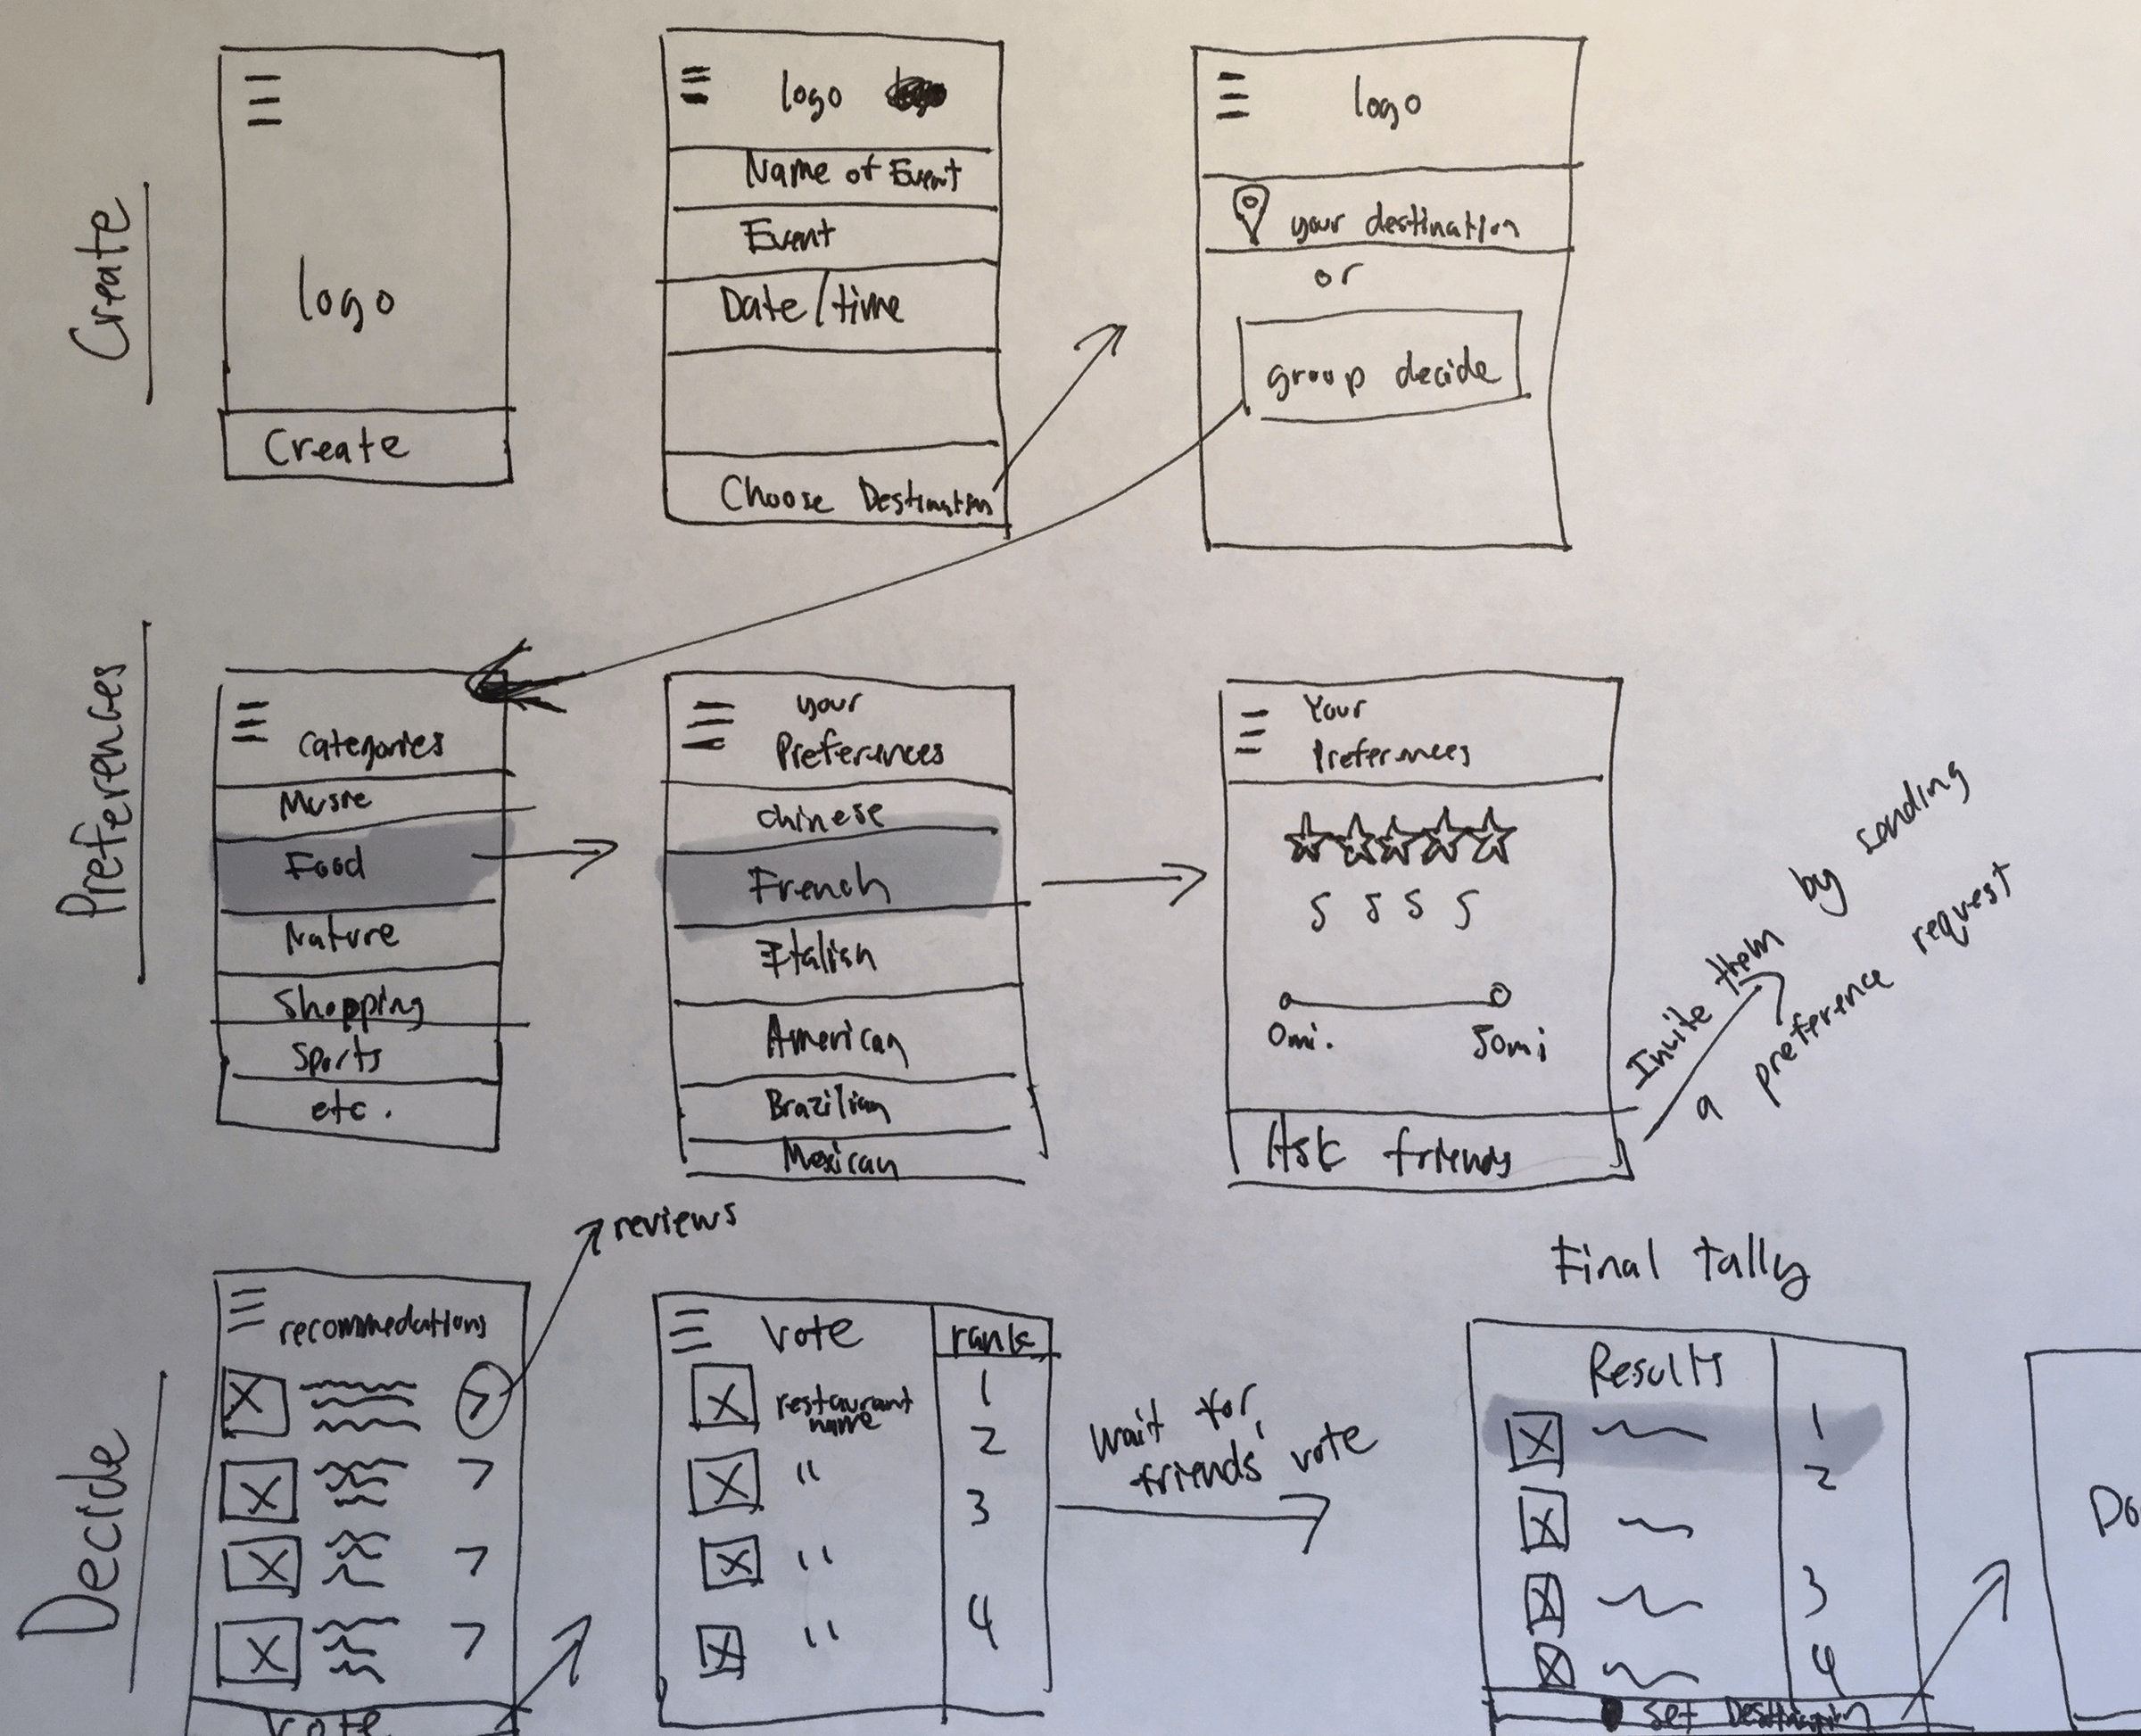 Create
logo
Create
logo
Name of Event
Event
Date/time
Choose Destination
logo
your destination
or
group decide
Preferences
Categories
Music
Food
Nature
Shopping
Sports
etc.
your
Preferences
chinese
French
Italian
American
Brazilian
Mexican
Your
Preferences
0mi.
50mi
Ask friends
Invite them by sending
a preference request
Decide
reviews
recommedations
Vote
Vote
rank
restaurant
name
"
"
"
1
2
3
4
wait for
friends' vote
Final tally
Results
1
2
3
4
Set Destination
Do